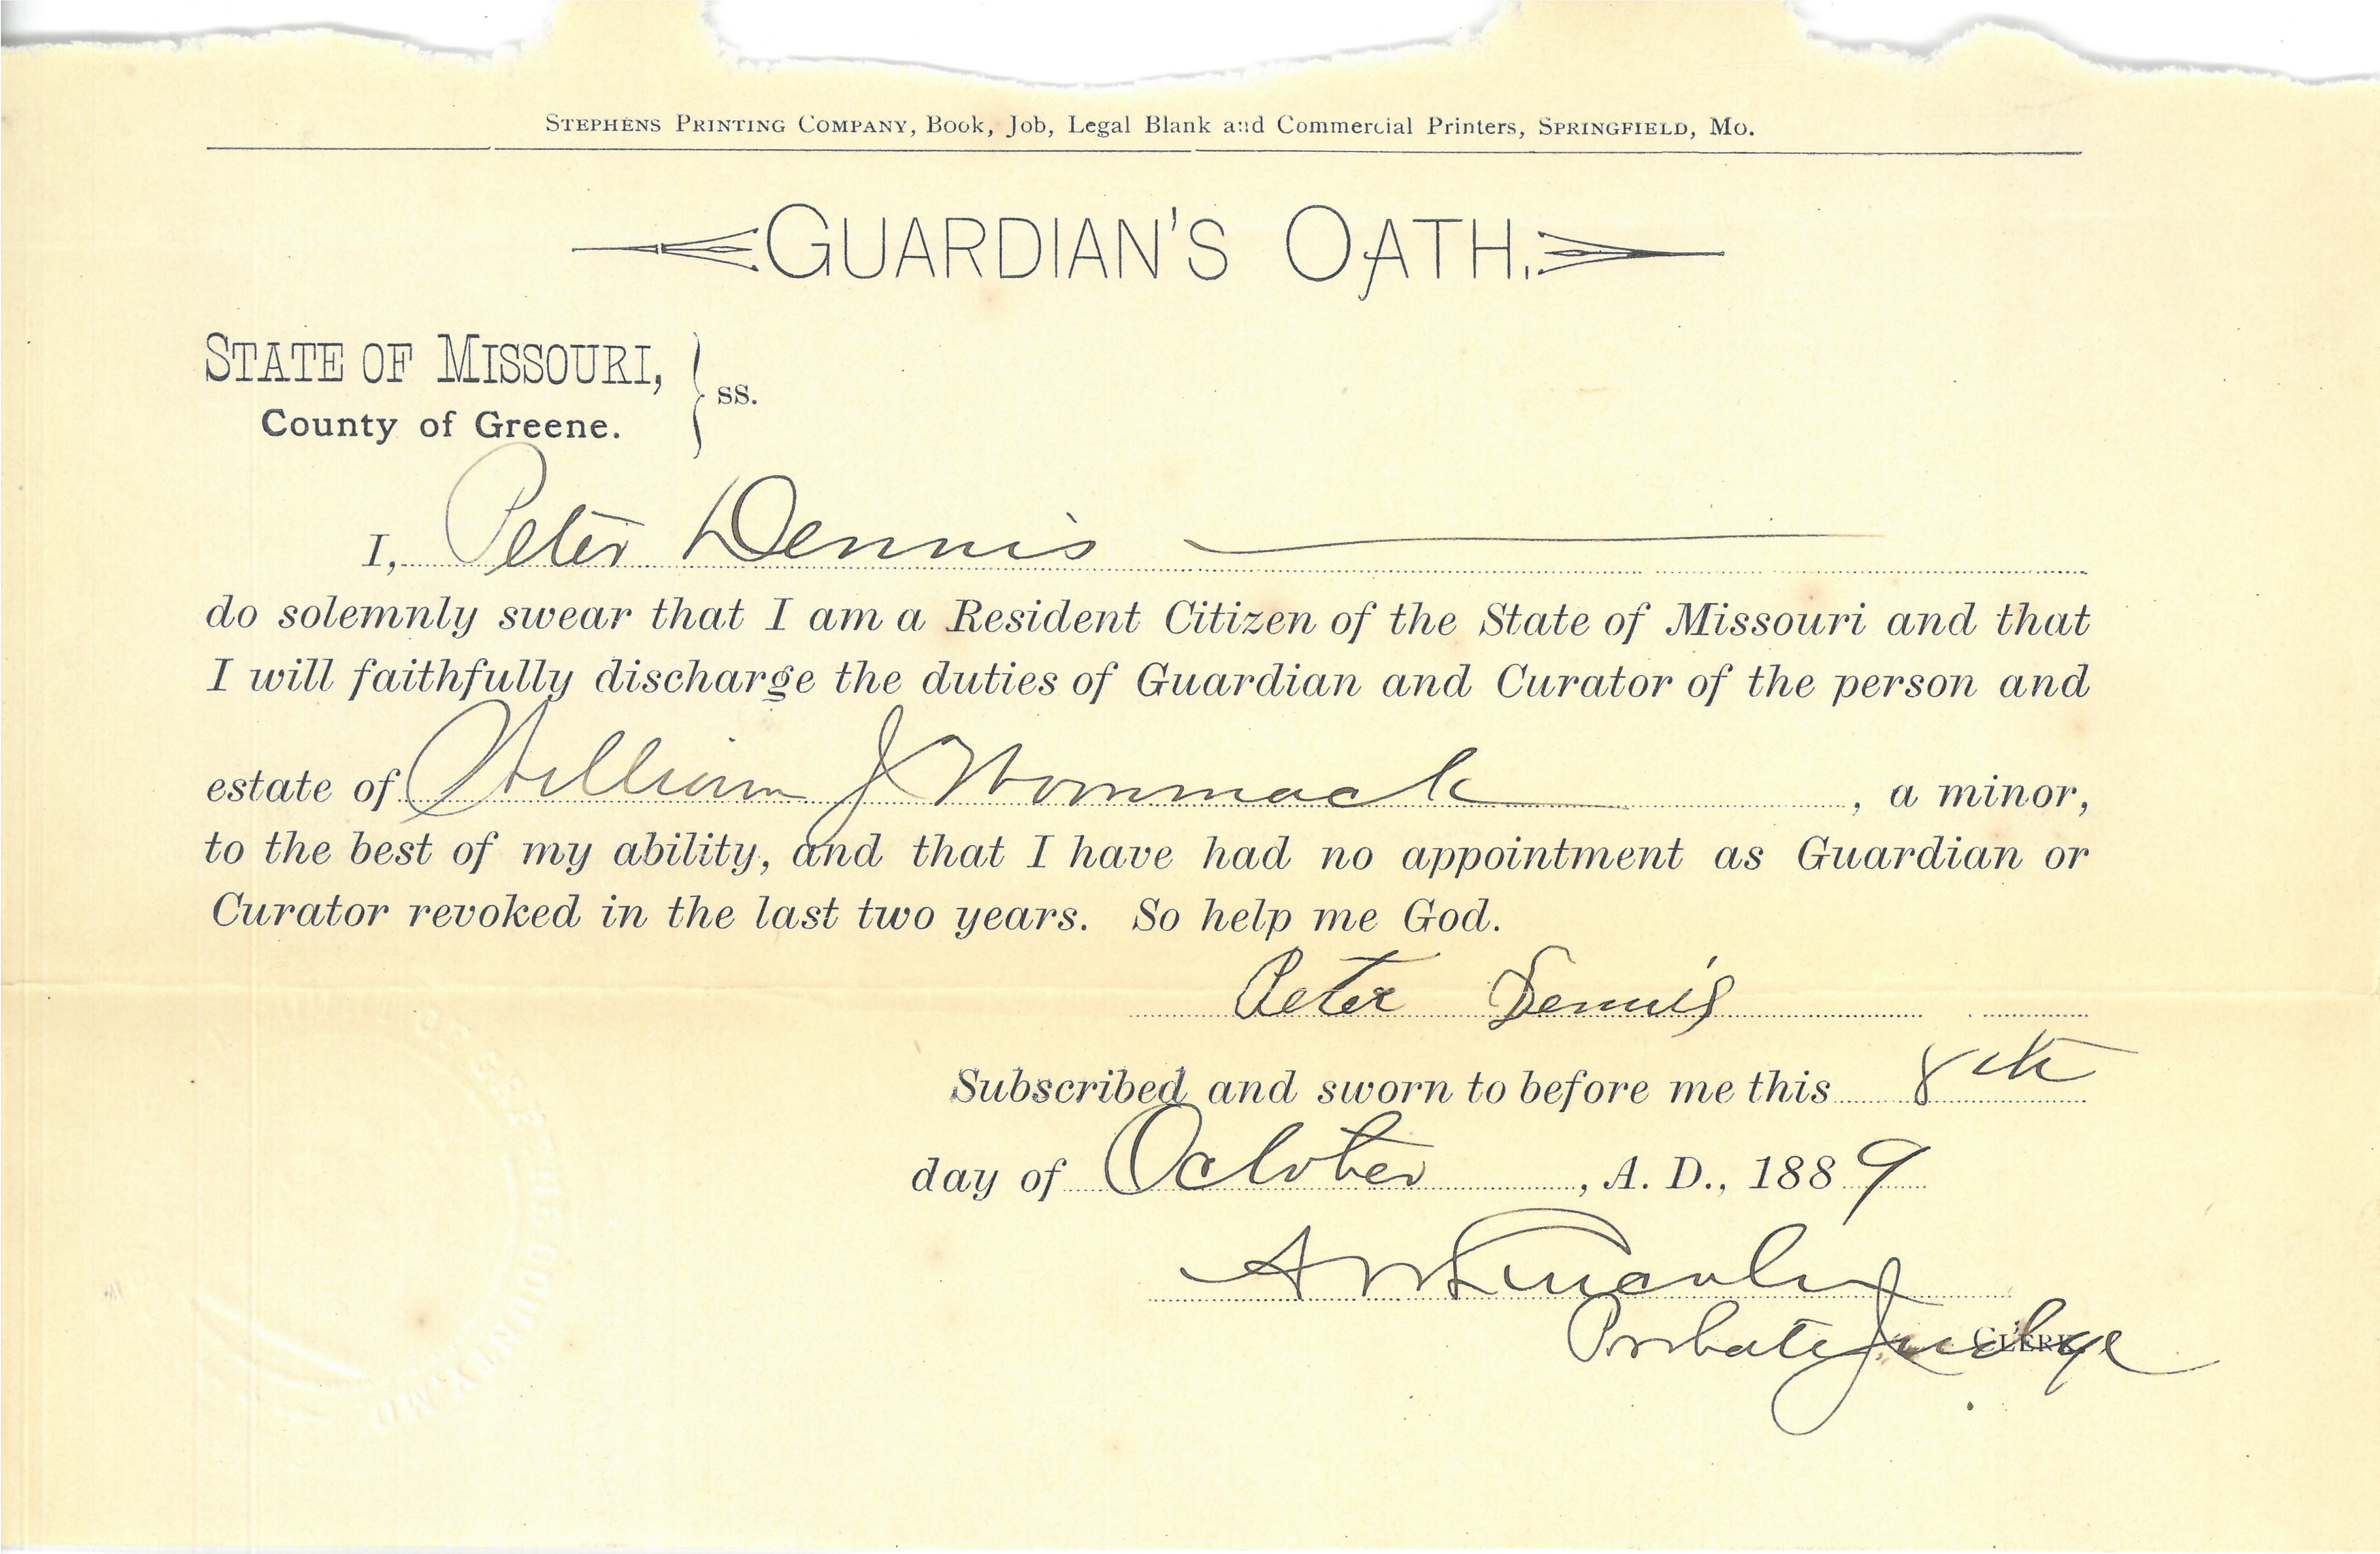 STEPHENS PRINTING COMPANY, Book, Job, Legal Blank and Commercial Printers, SPRINGFIELD, MO.
GUARDIAN'S OATH.
STATE OF MISSOURI,
County of Greene. } ss.
I, Peter Dennis
do solemnly swear that I am a Resident Citizen of the State of Missouri and that
I will faithfully discharge the duties of Guardian and Curator of the person and
estate of William J Wommack, a minor,
to the best of my ability, and that I have had no appointment as Guardian or
Curator revoked in the last two years. So help me God.
Peter Dennis
Subscribed and sworn to before me this 8th
day of October, A. D., 1889
Probate Judge CLERK
COUNTY, MO